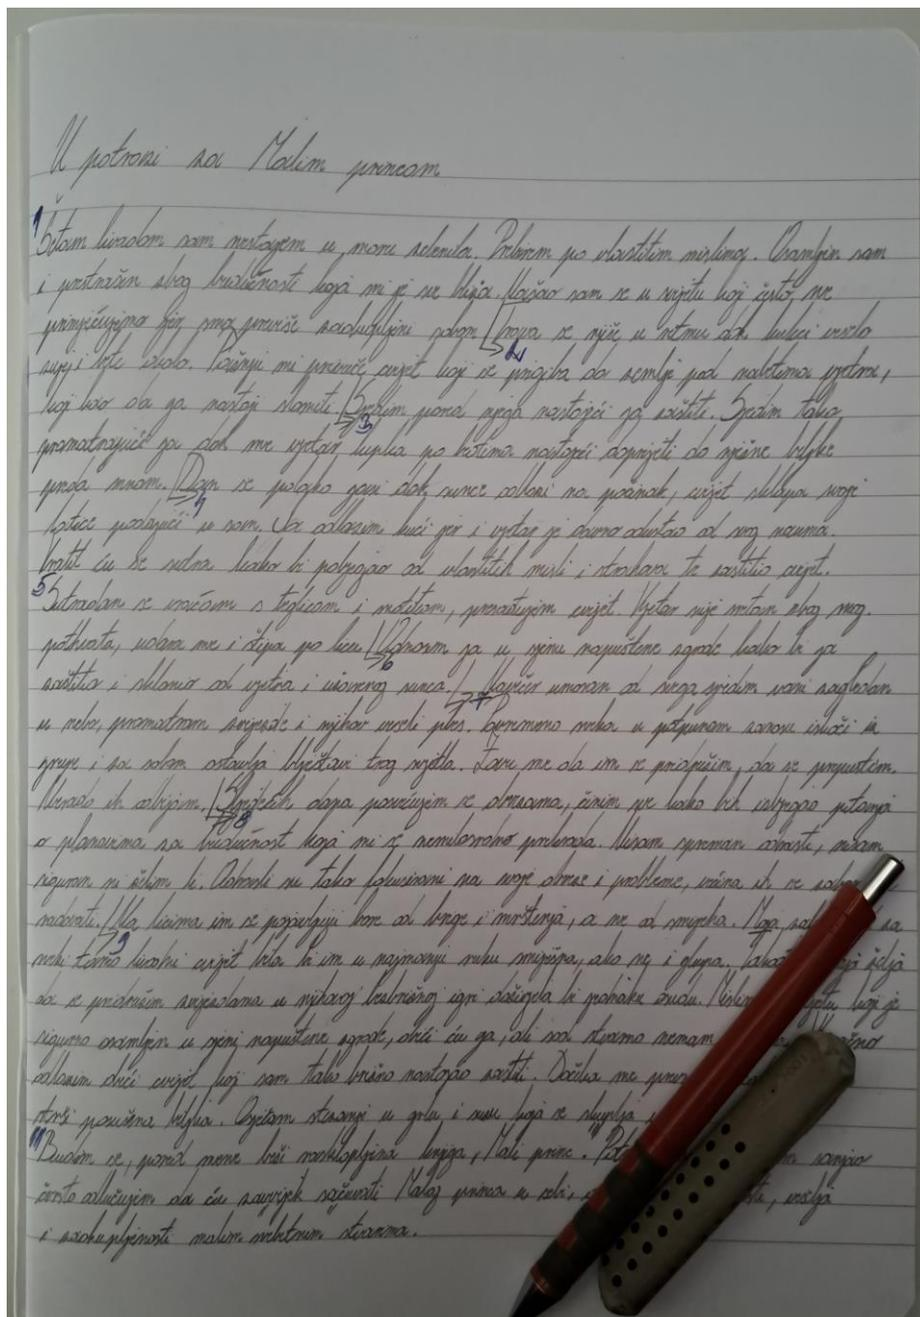 U potrazi za Malim princom
1 Šetam livadom sam nestajem u moru zelenila. Prebirem po vlastitim mislima. Osamljen sam
i prestrašen zbog budućnosti koja mi je sve bliža. Našao sam se u svijetu koji često ne
primjećujemo jer smo previše zaokupljeni sobom. Trava se njiše u ritmu dok kukci veselo
zuje i lete okolo. Pažnju mi privuče cvijet koji se prigiba do zemlje pod naletima vjetra,
koji kao da ga nastoji slomiti. 3 Sjedim pored njega nastojeći ga zaštititi. Sjedim tako
promatrajući ga dok me vjetar lupka po leđima nastojeći doprijeti do nježne biljke
preda mnom. 4 Dan se polako gasi dok sunce odlazi na počinak, cvijet sklapa svoje
latice padajući u san. Ja odlazim kući jer i vjetar je davno odustao od svog nauma.
Vratit ću se sutra kako bi pobjegao od vlastitih misli i strahova te zaštitio cvijet.
5 Sutradan se vraćam s teglicom i motikom, presađujem cvijet. Vjetar nije sretan zbog mog
pothvata, udara me i štipa po licu. 6 Odnosim ga u sjenu napuštene zgrade kako bi ga
zaštitio i sklonio od vjetra i užarenog sunca. 7 Navečer umoran od svega sjedim vani zagledan
u nebo, promatram zvijezde i njihov veseli ples. Povremeno neka u potpunom zanosu iskoči iz
grupe i za sobom ostavlja blještavi trag svjetla. Zove me da im se pridružim, da se prepustim.
Nerado ih odbijam. 8 Sljedećih dana posvećujem se obvezama, činim sve kako bih izbjegao pitanja
o planovima za budućnost koja mi se nemilosrdno prikrada. Nisam spreman odrasti, nisam
siguran ni želim li. Odrasli su tako fokusirani na svoje obveze i probleme, većina ih se zaboravi
radovati. 9 Na licima im se pojavljuju bore od brige i mrštenja, a ne od smijeha. Moja za
neki tamo livadni cvijet bila bi im u najmanju ruku smiješna, ako ne i glupa. želja
da se pridružim zvijezdama u njihovoj bezbrižnoj igri doživjela bi jednaku osudu. koji je
sigurno osamljen u sjeni napuštene zgrade, obići ću ga, ali sad stvarno nemam
odlazim obići cvijet koji sam tako brižno nastojao zaštititi. Dočeka me
strši posušena biljka. Osjećam stezanje u grlu i suzu koja se skuplja
11 Budim se, pored mene leži rasklopljena knjiga „Mali princ." sanjao
čvrsto odlučujem da ću zauvijek sačuvati Malog princa u sebi, veselja
i zaokupljenosti malim nebitnim stvarima.